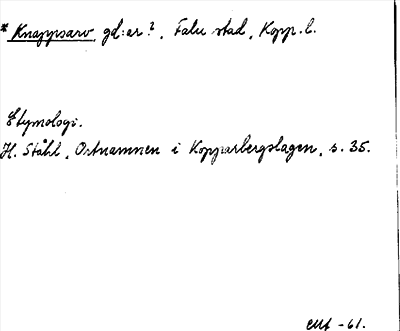 * Knappsarv, gd:ar?, Falu stad, Kopp. l.
Etymologi.
H. Ståhl, Ortnamnen i Kopparbergslagen, s. 35.
-61.